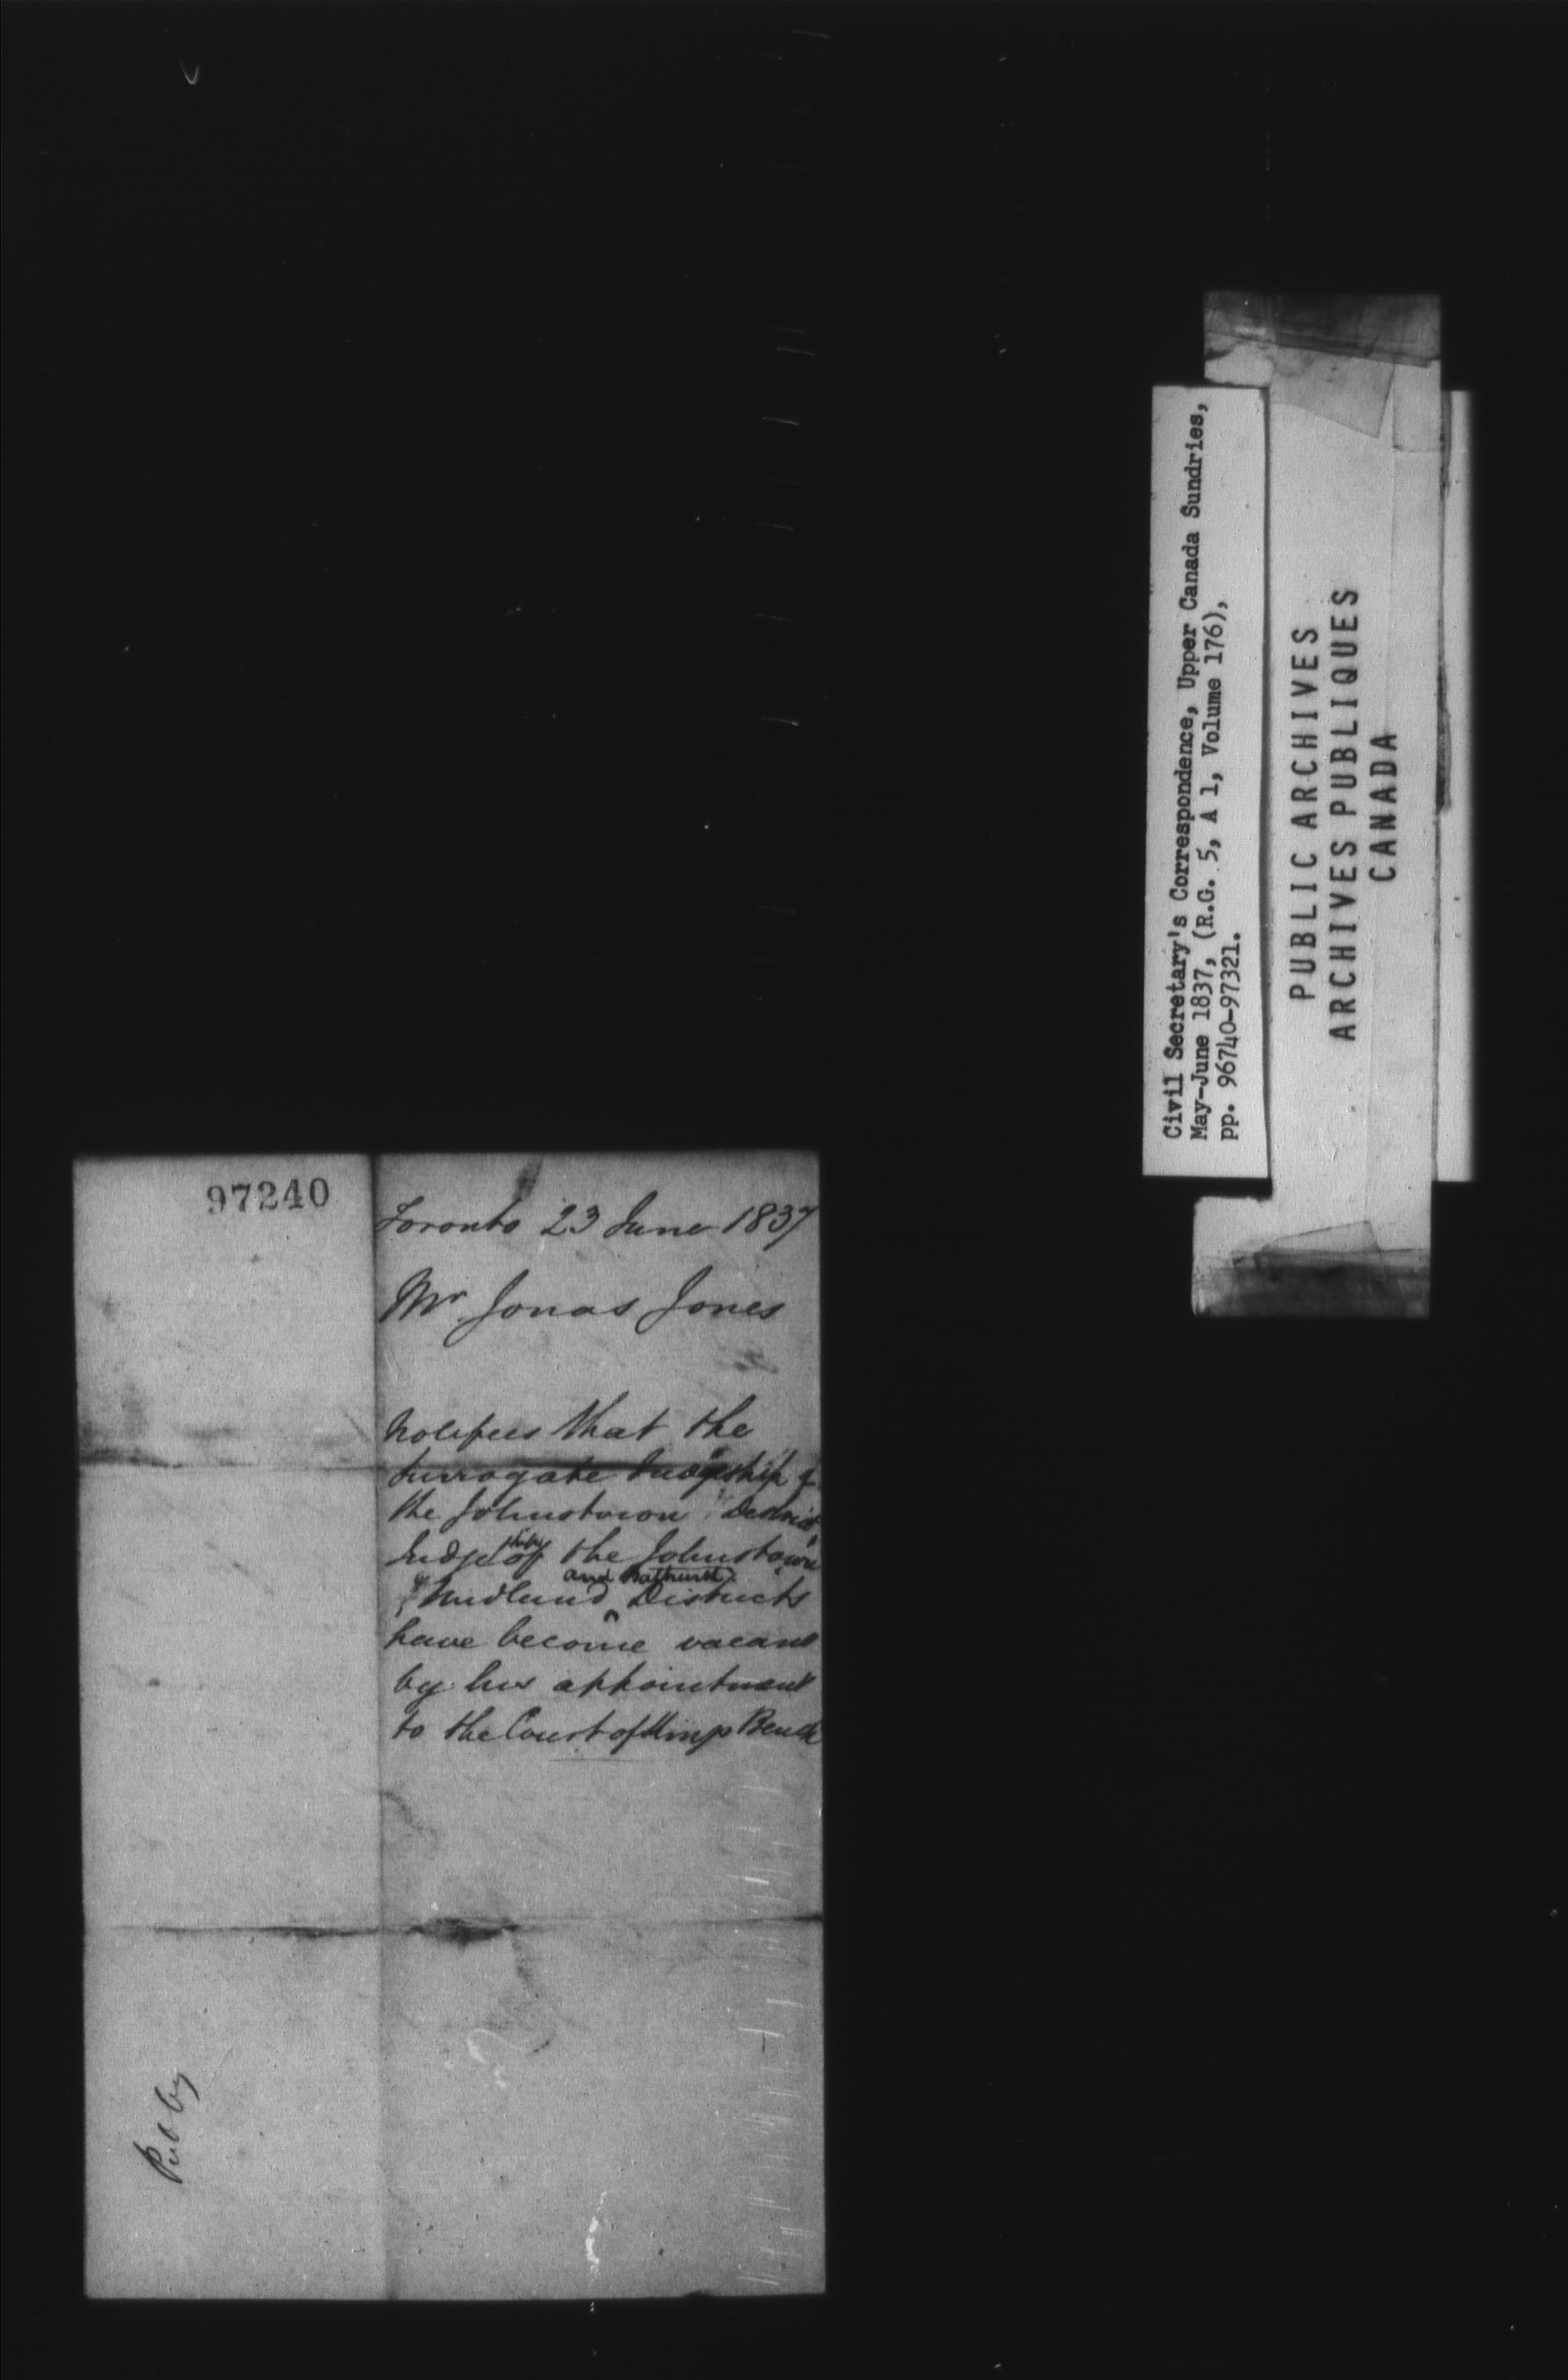 97240
Toronto 23 June 1837
Mr Jonas Jones
Notifies that the
Surrogate Judgeship of
the Johnstown District,
Judgeship of the Johnstown
Midland and Bathurst Districts
have become vacant
by his appointment
to the Court of Kings Bench
Civil Secretary's Correspondence, Upper Canada Sundries,
May-June 1837, (R.G. 5, A 1, Volume 176),
pp. 96740-97321.
PUBLIC ARCHIVES
ARCHIVES PUBLIQUES
CANADA